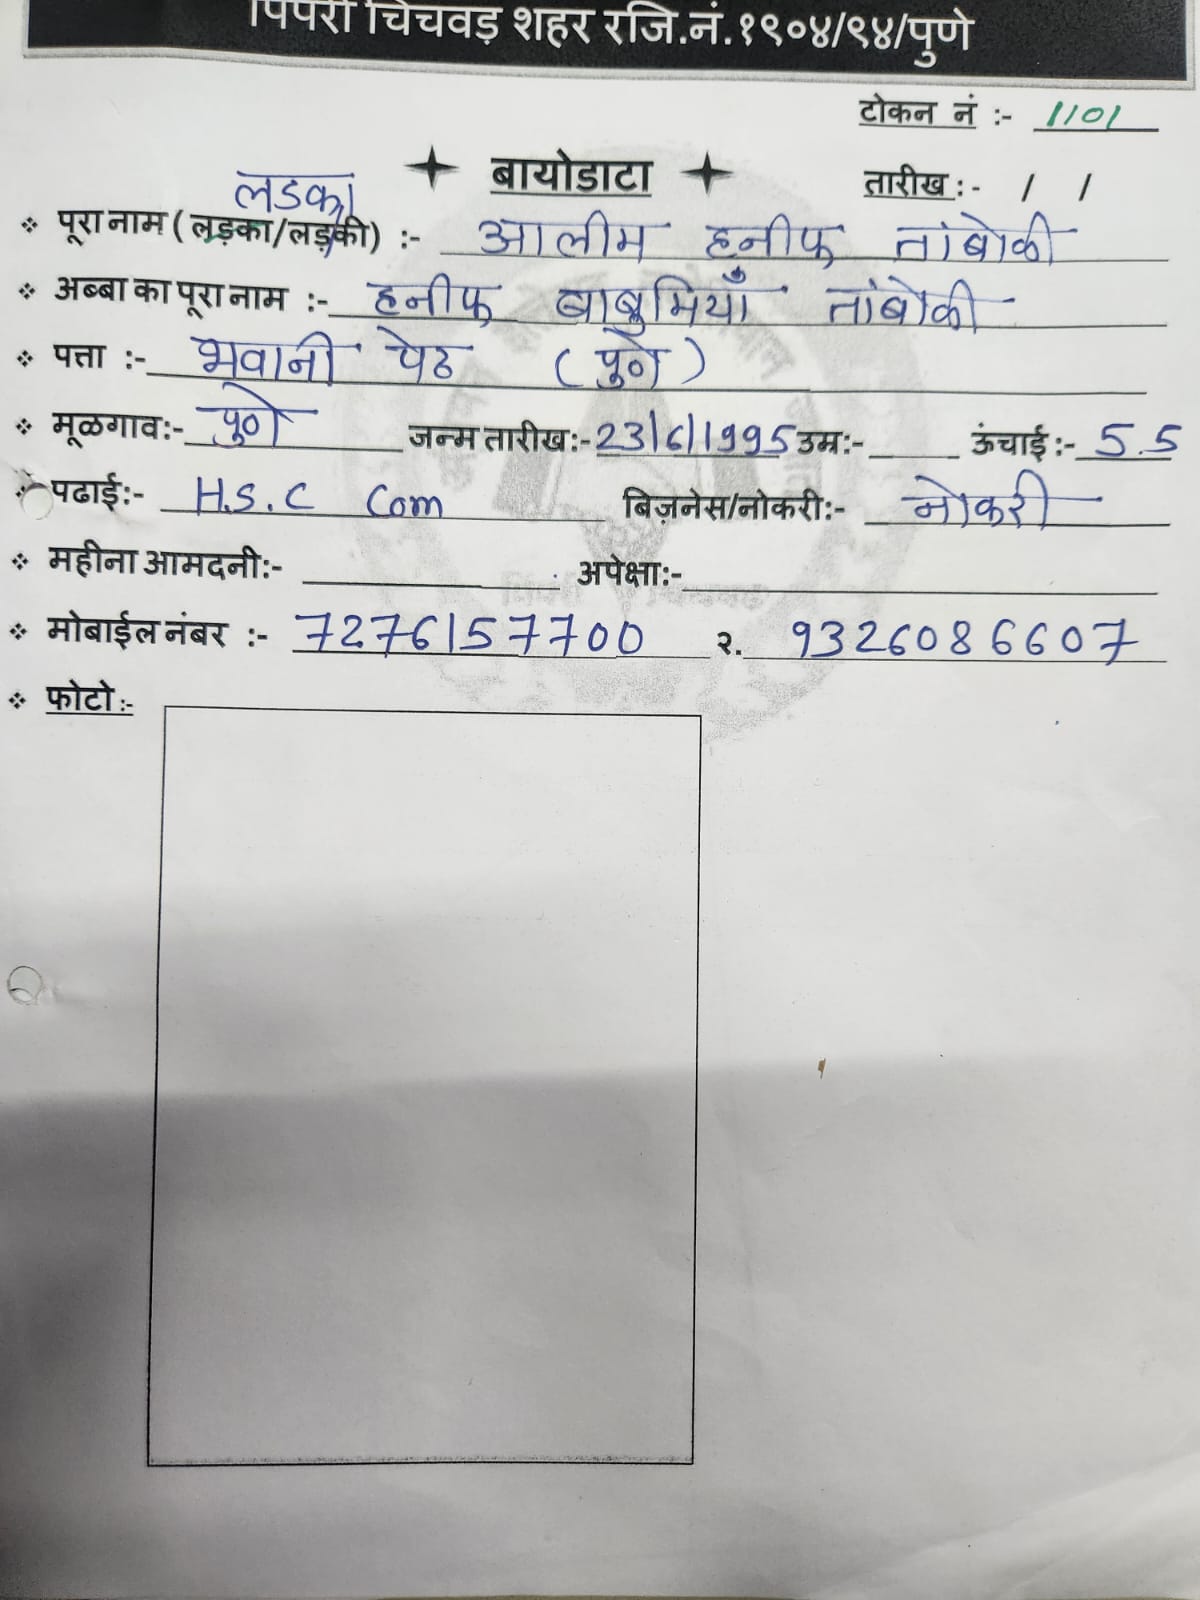 पिंपरी चिंचवड़ शहर रजि.नं.१९०४/९४/पुणे
टोकन नं :- 1101
बायोडाटा
तारीख :- / /
लडका
पूरा नाम ( लड़का/लड़की) :- आलीम हनीफ तांबोळी
अब्बा का पूरा नाम :- हनीफ बाबुमियाँ तांबोळी
पत्ता :- भवानी पेठ (पुणे)
मूळगाव:- पुणे जन्म तारीख:- 23/6/1995 उम्र:- ऊंचाई :- 5.5
पढाई:- H.S.C Com बिज़नेस/नोकरी:- नोकरी
महीना आमदनी:- अपेक्षा:-
मोबाईल नंबर :- 7276157700 २. 9326086607
फोटो :-